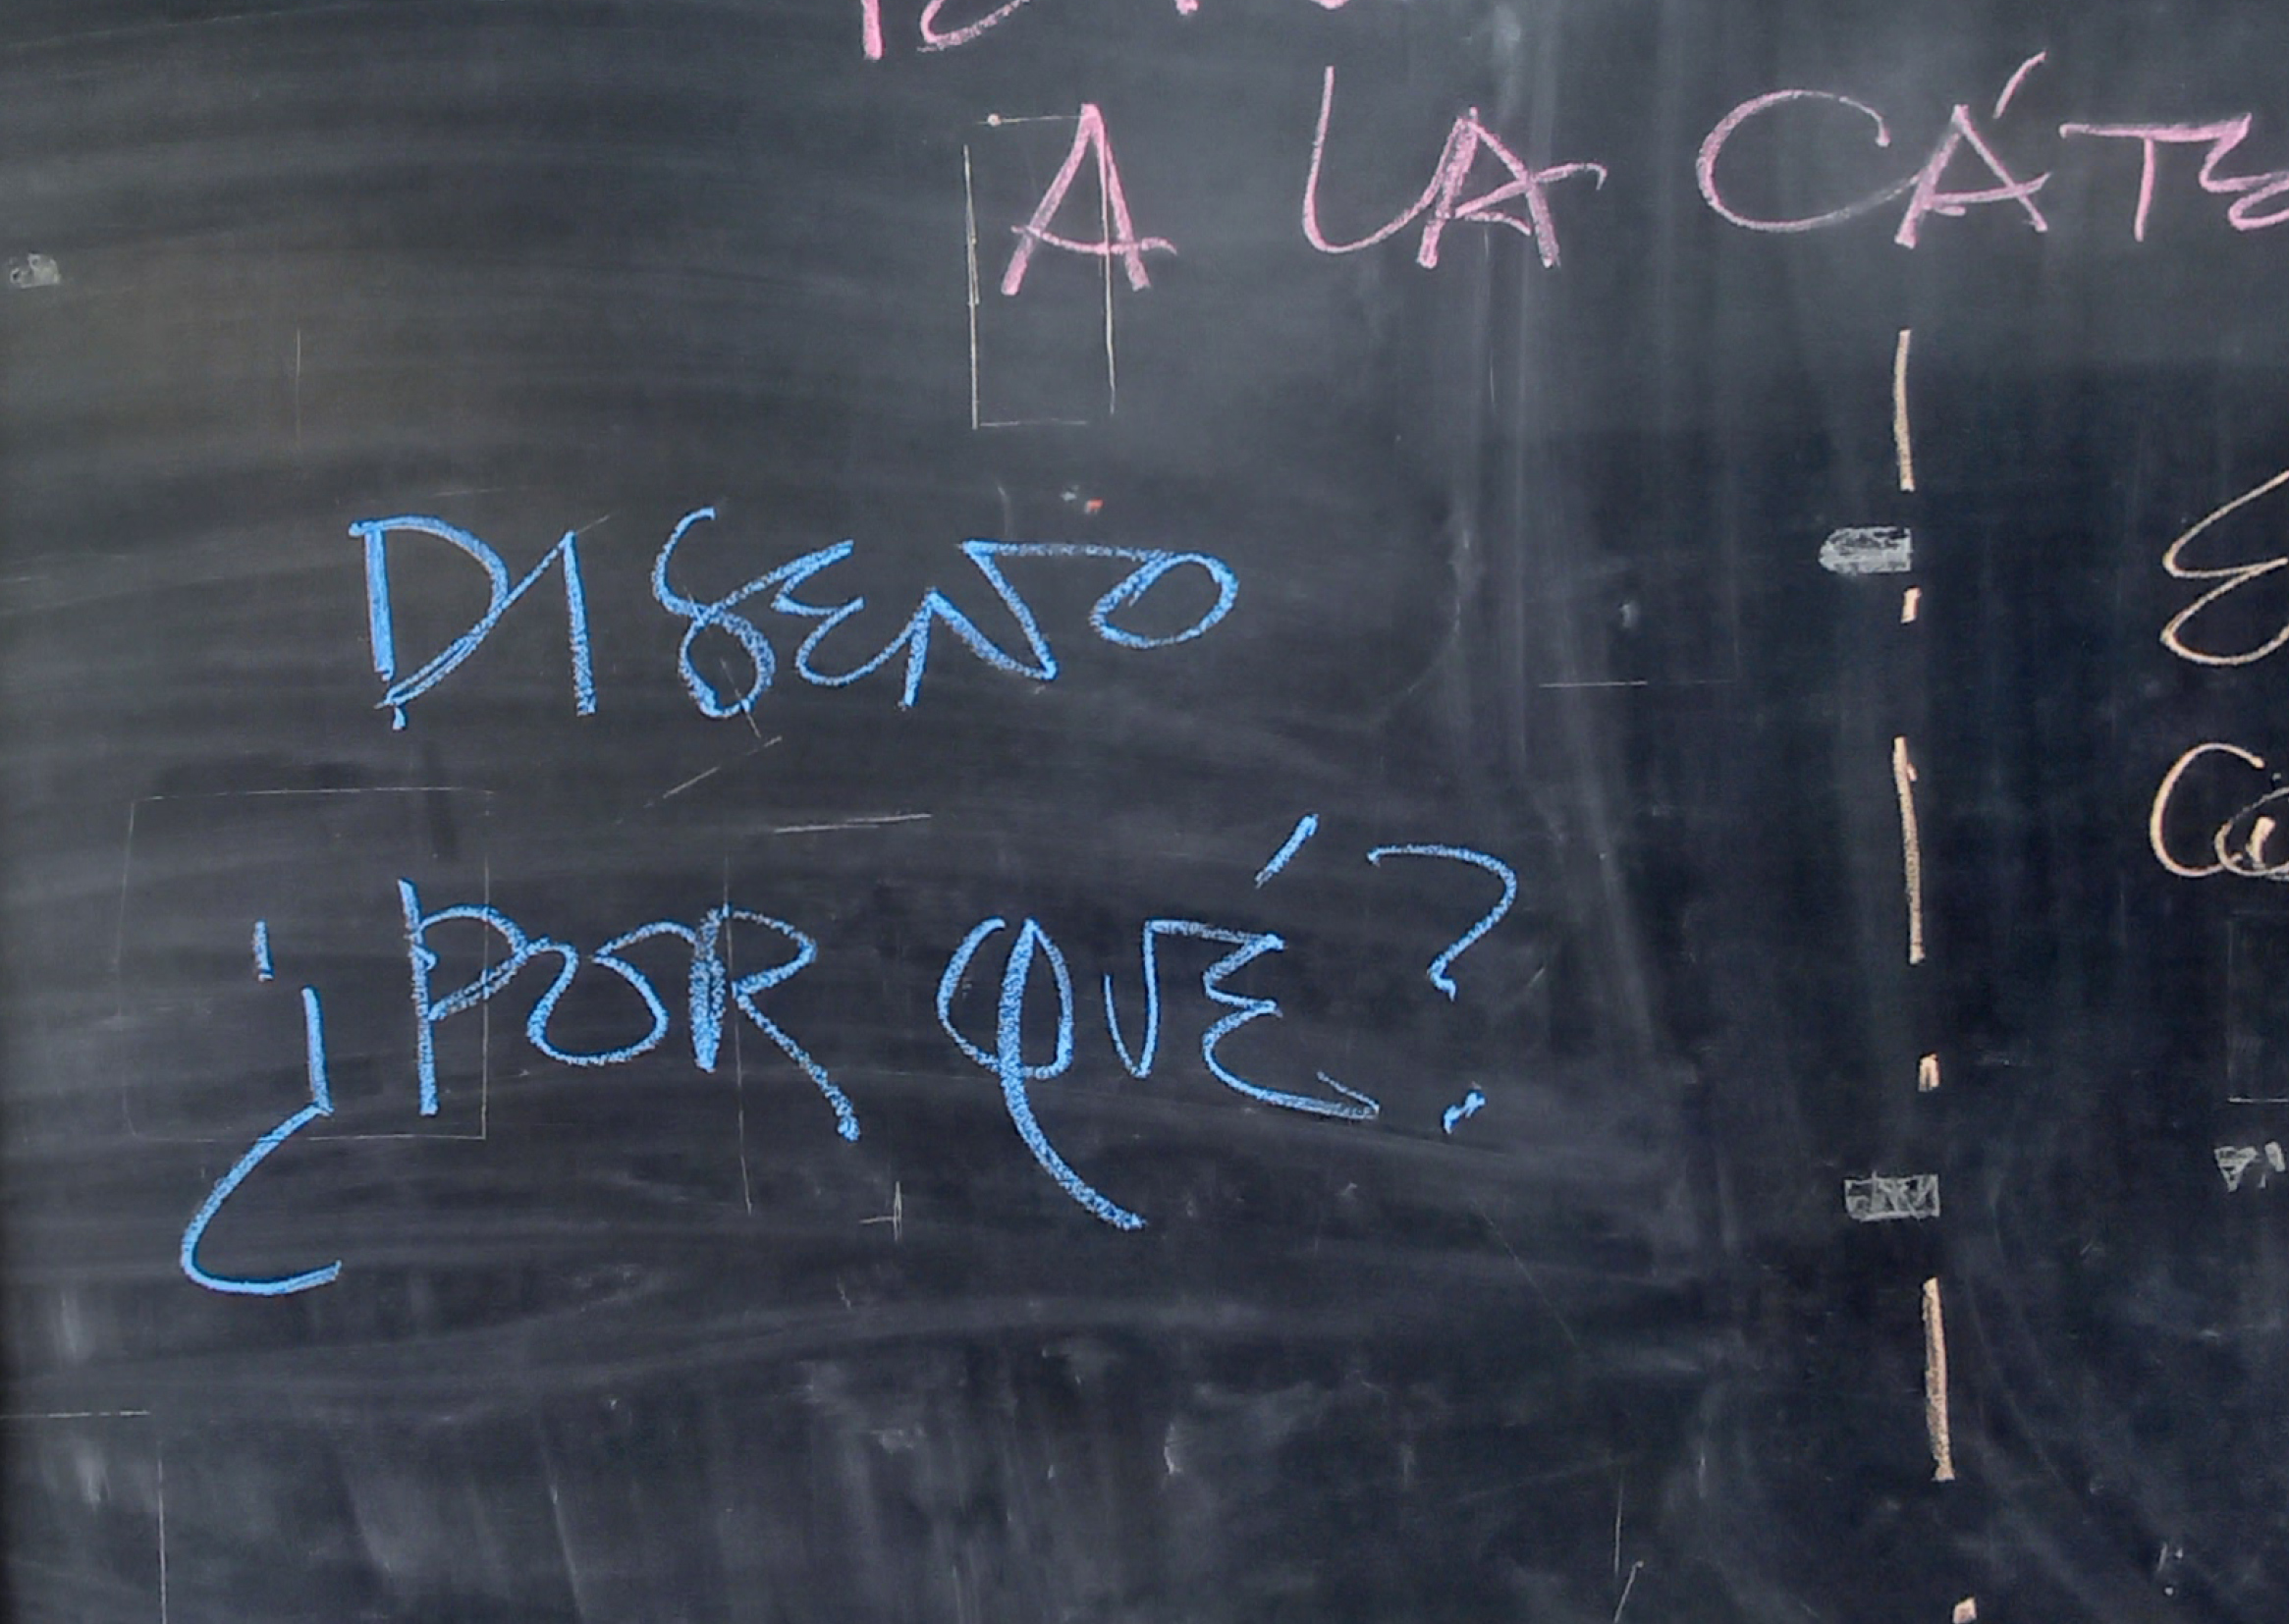 A LA CÁTE
DISENO
¿POR QUÉ?